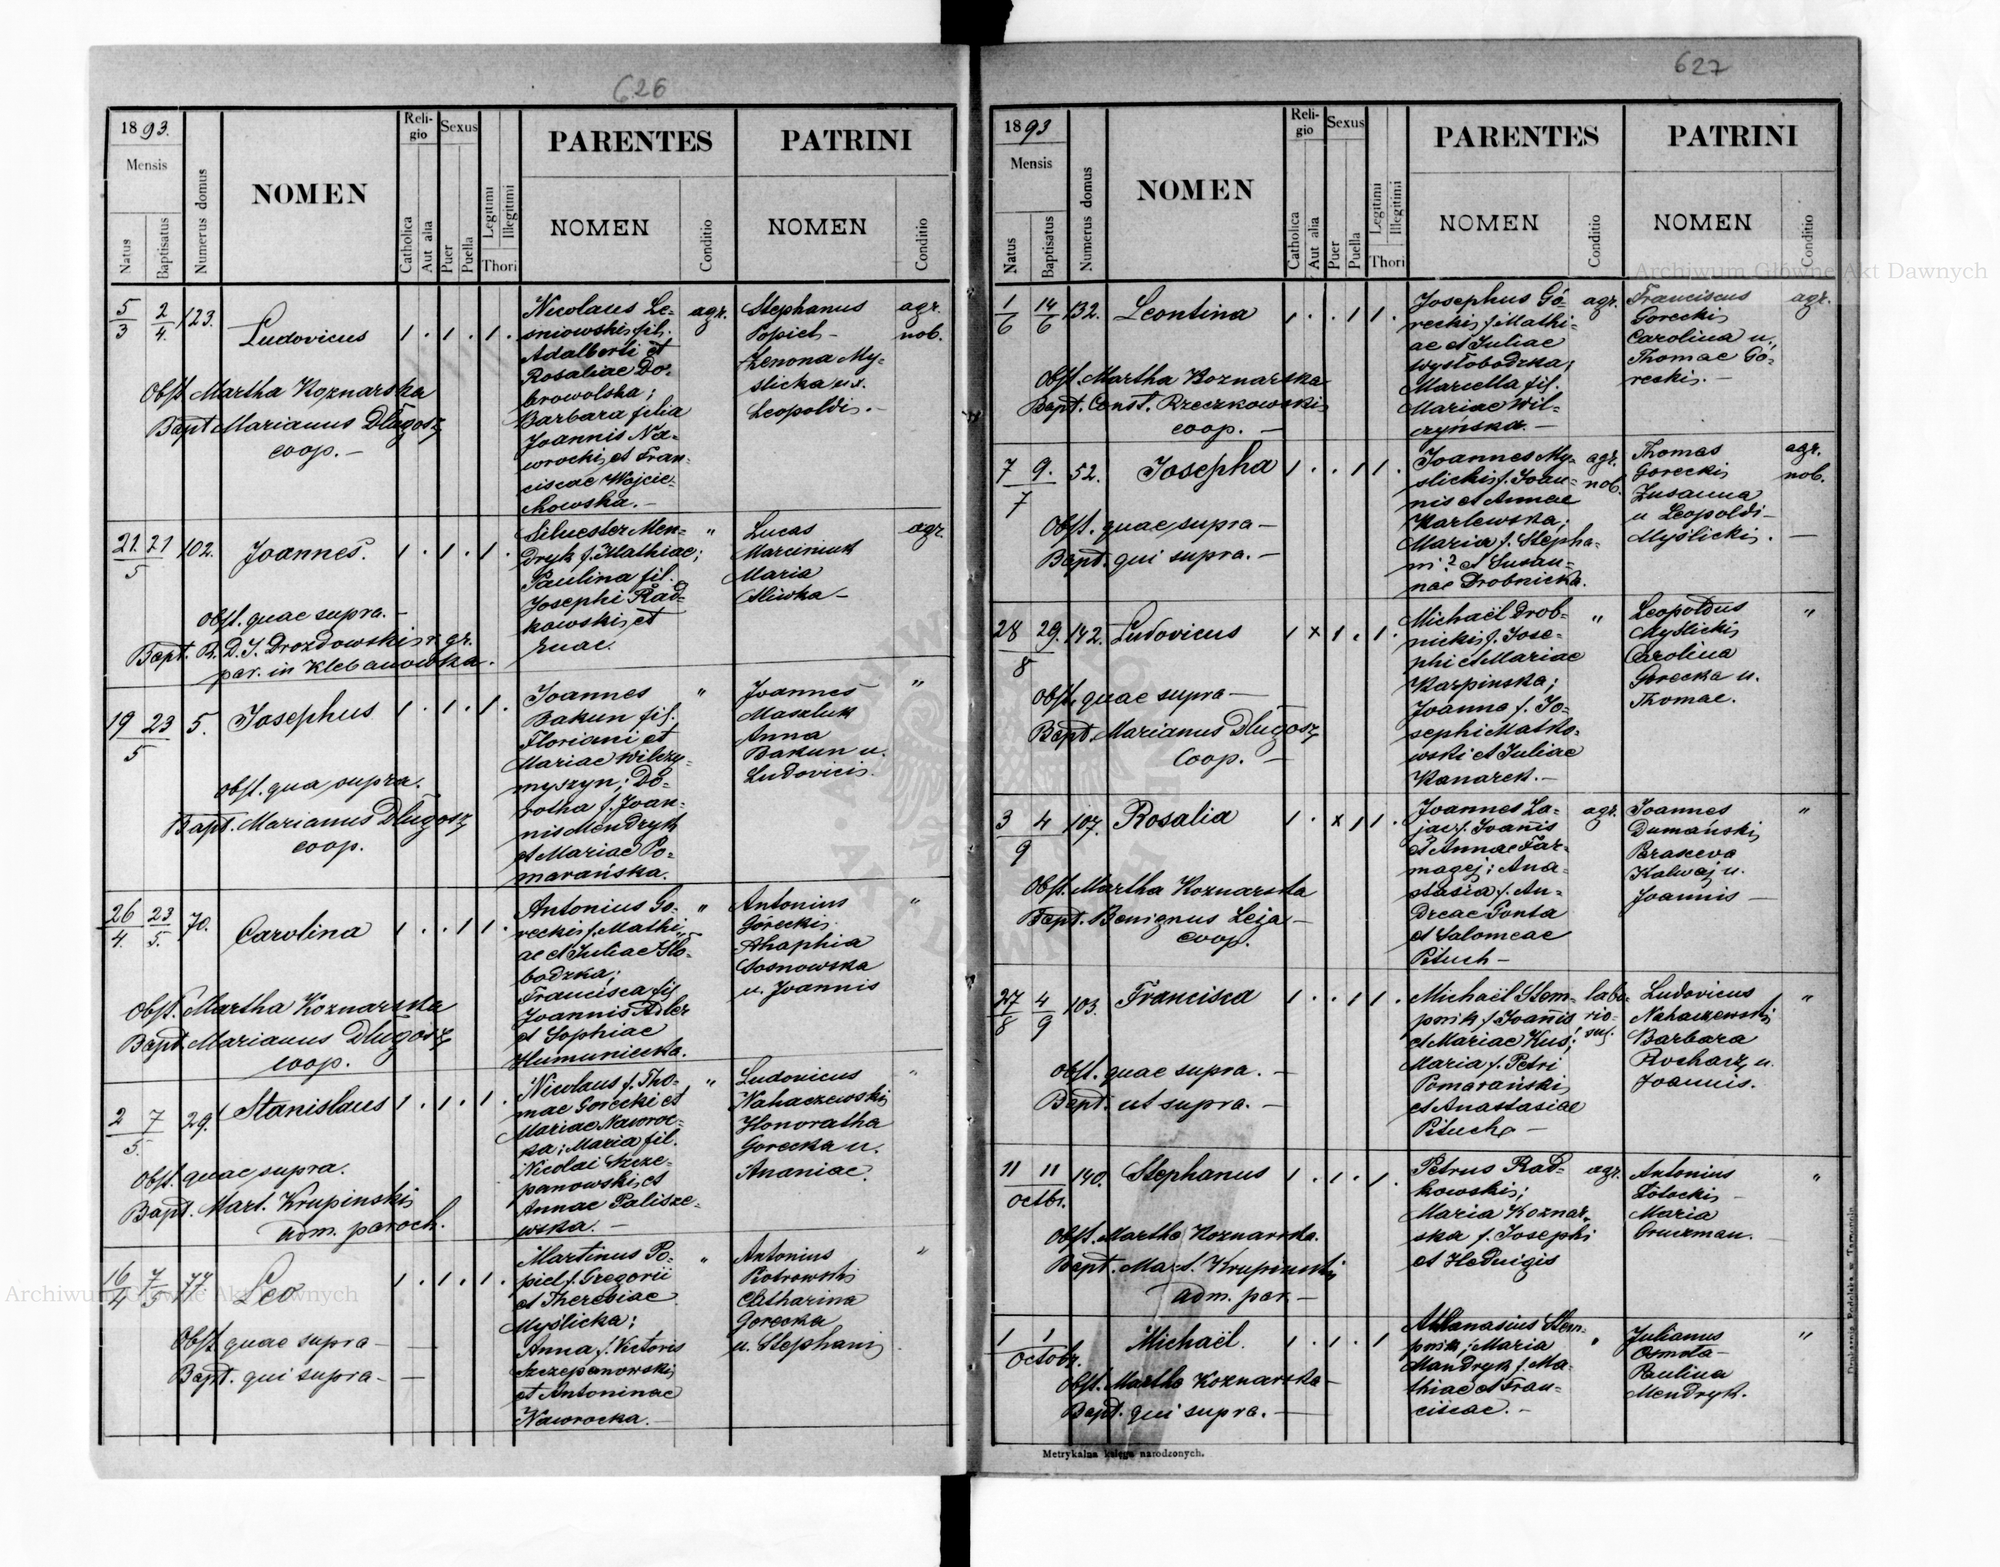 626
1893.
Mensis
Natus
Baptisatus
Numerus domus
NOMEN
Religio
Catholica
Aut alia
Sexus
Puer
Puella
Legitimi
Illegitimi
Thori
PARENTES
NOMEN
Conditio
PATRINI
NOMEN
Conditio
5/3 2/4. 123. Ludovicus 1 . 1 . 1 .
Obst. Martha Koznarska
Bapt Marianus Długosz
coop. –
Nicolaus Le-
sniowski, fil.
Adalberti et
Rosaliae Do-
browolska;
Barbara filia
Joannis Na-
wrocki, et Fran-
ciscae Wojcie-
chowska. –
agr.
Stephanus
Popiel –
Zenona My-
slicka ux.
Leopoldi. –
agr.
nob.
21. 21 / 5 102. Joannes. 1 . 1 . 1 .
Obst. quae supra. –
Bapt. R. D. J. Drozdowski, r. gr.
par. in Klebanowka.
Silvester Men-
dryk f. Mathiae;
Paulina fil.
Josephi Rad-
kowski, et
"
Lucas
Marciniuk
Maria
Sliwka –
agr.
19 23 / 5 5. Josephus 1 . 1 . 1 .
Obst. qua supra.
Bapt. Marianus Długosz
coop.
Joannes
Bakun fil.
Floriani et
Mariae Wilczy-
myszyn; Do-
rotha f. Joan-
nis Mendryk
et Mariae Po-
marańska.
"
Joannes
Maszluk
Anna
Bakun u.
Ludovici.
"
26/4. 23/5. 70. Carolina 1 . . 1 1 .
Obst. Martha Koznarska
Bapt. Marianus Długosz
coop.
Antonius Go-
recki, f. Mathi-
ae et Juliae Slo-
bodzka;
Francisca fil.
Joannis Adler
et Sophiae
Humuniecka.
"
Antonius
Górecki
Ahaphia
Sosnowska
u. Joannis
"
2 7 / 5. 29. Stanislaus 1 . 1 . 1 .
Obst. quae supra.
Bapt. Mart. Krupinski,
adm. paroch.
Nicolaus f. Tho-
mae Gorecki et
Mariae Nawroc-
ka; Maria fil.
Nicolai Szcze-
panowski, et
Annae Palisze-
wska. –
"
Ludovicus
Nahaczewski,
Honoratha
Gorecka u.
Ananiae.
"
16/4 7/5 77. Leo 1 . 1 . 1 .
Obst. quae supra –
Bapt. qui supra –
Martinus Po-
piel f. Gregorii
et Theresiae
Myślicka;
Anna f. Victoris
Szczepanowski,
et Antoninae
Nawrocka. –
"
Antonius
Piotrowski,
Catharina
Gorecka
u. Stephani,
"
627
1893
Mensis
Natus
Baptisatus
Numerus domus
NOMEN
Religio
Catholica
Aut alia
Sexus
Puer
Puella
Legitimi
Illegitimi
Thori
PARENTES
NOMEN
Conditio
PATRINI
NOMEN
Conditio
1/6 14/6 132. Leontina 1 . . 1 1
Obst. Martha Koznarska
Bapt. Const. Rzeczkowski,
coop. –
Josephus Gó-
recki, f. Mathi-
ae et Juliae
Wysłobodzka;
Marcella fil.
Mariae Wil-
czyńska. –
agr.
Franciscus
Gorecki,
Carolina u.,
Thomae Go-
recki. –
agr.
7 9. / 7 52. Josepha 1 . . 1 1 .
Obst. quae supra –
Bapt. qui supra. –
Joannes My-
slicki, f. Joan-
nis et Annae
Karlewska;
Maria f. Stepha-
ni ? et Susan-
nae Drobnicka.
agr.
nob.
Thomas
Gorecki,
Zusanna
u Leopoldi –
Myślicki. –
agr.
nob.
28 29. / 8 142. Ludovicus 1 x 1 . 1 .
Obst. quae supra –
Bapt. Marianus Długosz
Coop. –
Michaël Drob-
nicki, f. Jose-
phi et Mariae
Karpinska;
Joanna f. Jo-
sephi Malko-
wski et Juliae
Kanarek. –
"
Leopoldus
Myślicki,
Carolina
Gorecka u.
Thomae.
"
3 4 / 9 107. Rosalia 1 . x 1 1 .
Obst. Martha Koznarska
Bapt. Benignus Leja –
coop.
Joannes La-
jac, f. Joañis
et Annae Far-
magej; Ana-
stasia f. An-
dreae Gonta
et Salomeae
Pituch –
agr.
Joannes
Dumański,
Parasceva
Kalwaj u.
Joannis –
"
27/8 4/9 103. Francisca 1 . . 1 1 .
Obst. quae supra. –
Bapt. ut supra. –
Michaël Stem-
pnik f. Joañis
et Mariae Kus;
Maria f. Petri
Pomarański,
et Anastasiae
Pituch, –
labo-
rio-
sus.
Ludovicus
Nahaczewski,
Barbara
Kocharz u.
Joannis.
"
11 11 / Octbr. 140. Stephanus 1 . 1 . 1 .
Obst. Martha Koznarska.
Bapt. Mart. Krupinski,
adm. par. –
Petrus Rad-
kowski;
Maria Koznar-
ska f. Josephi
et Hedvigis
agr.
Antonius
Maria
"
1 1 / Octobr. Michaël. 1 . 1 . 1
Obst. Martha Koznarska –
Bapt. qui supra. –
Athanasius Stem-
pnik; Maria
Mandryk f. Ma-
thiae et Fran-
ciscae. –
"
Julianus
Osmóła –
Paulina
Mendryk.
"
Metrykalna księga narodzonych.
Drukarnia Podolska w Tarnopolu
Archiwum Główne Akt Dawnych
Archiwum Główne Akt Dawnych